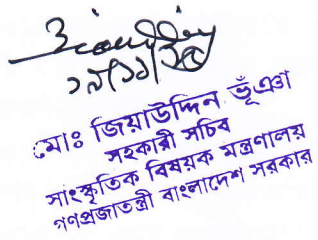 মোঃ জিয়াউদ্দিন ভূঁঞা
সহকারী সচিব
সাংস্কৃতিক বিষয়ক মন্ত্রণালয়
গণপ্রজাতন্ত্রী বাংলাদেশ সরকার